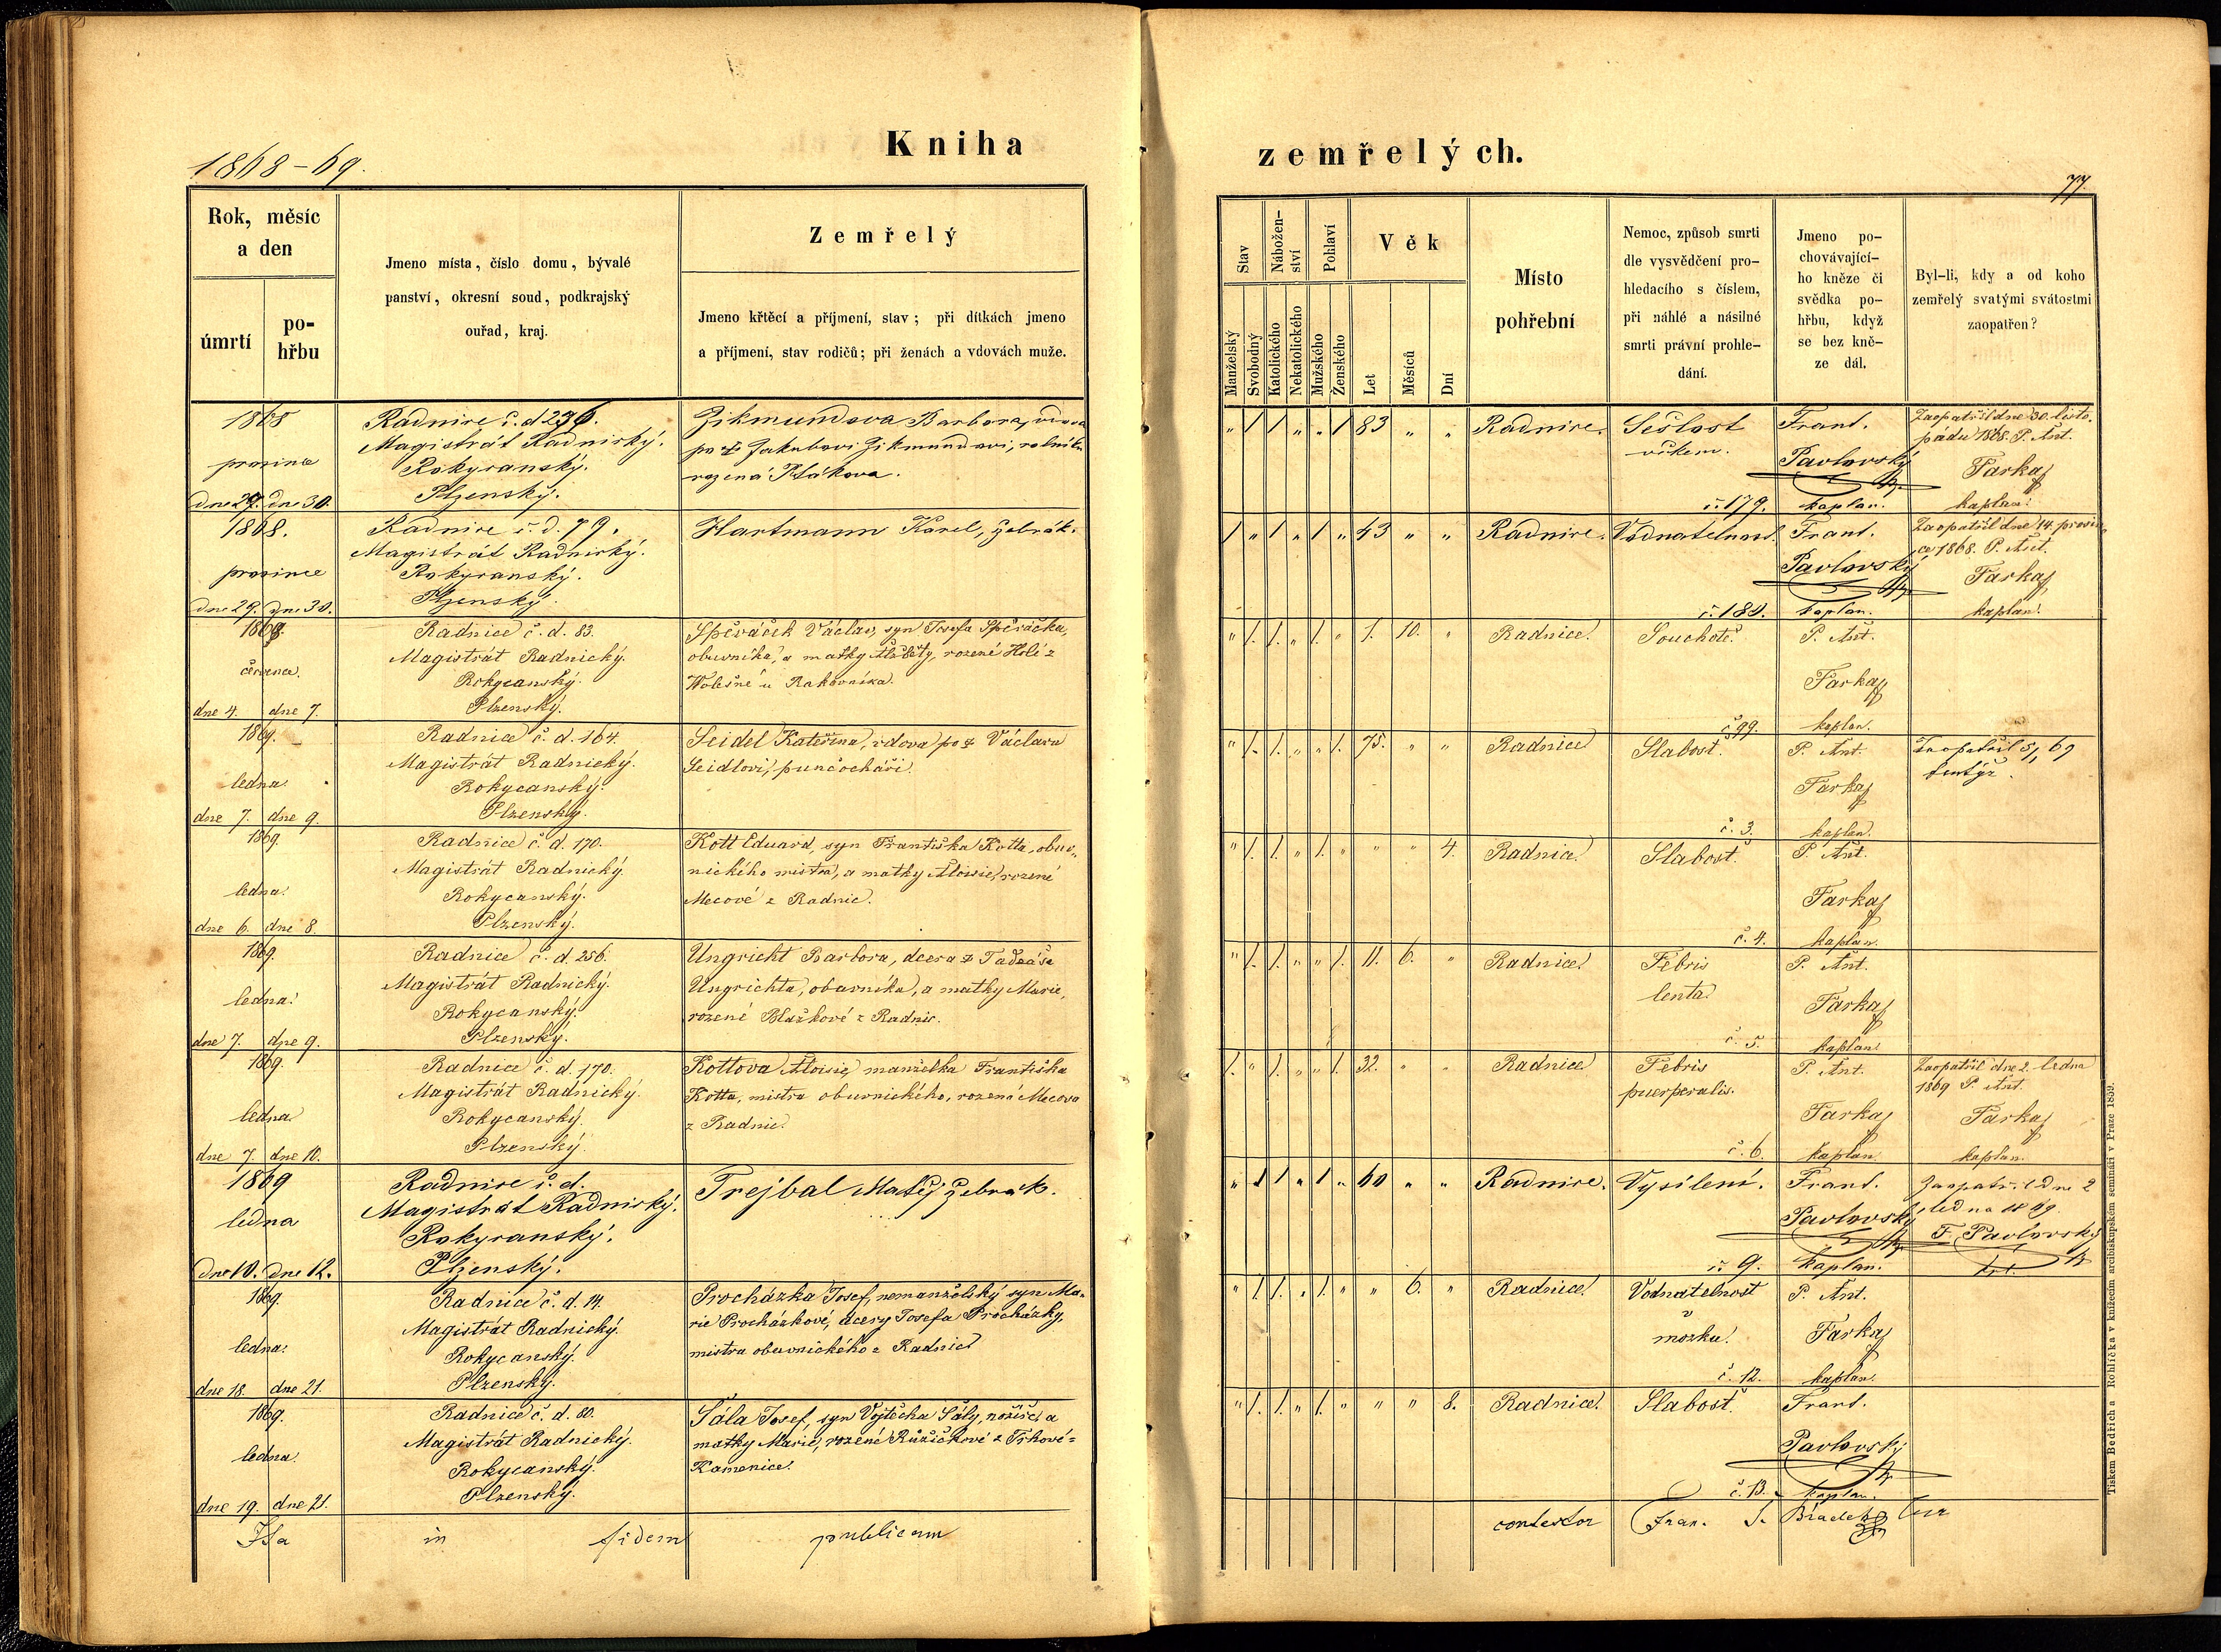 Kniha
zemřelých.
1868-69.
77.
Rok, měsíc
a den
úmrtí
po-
hřbu
Jmeno místa, číslo domu, bývalé
panství, okresní soud, podkrajský
ouřad, kraj.
Zemřelý
Jmeno křtěcí a příjmení, stav; při dítkách jmeno
a příjmení, stav rodičů; při ženách a vdovách muže.
Stav
Manželský
Svobodný
Nábožen-
ství
Katolického
Nekatolického
Pohlaví
Mužského
Ženského
Věk
Let
Měsíců
Dní
Místo
pohřební
Nemoc, způsob smrti
dle vysvědčení pro-
hledacího s číslem,
při náhlé a násilné
smrti právní prohle-
dání.
Jmeno po-
chovávající-
ho kněze či
svědka po-
hřbu, když
se bez kně-
ze dál.
Byl-li, kdy a od koho
zemřelý svatými svátostmi
zaopatřen?
1868
prosince
dne 29. dne 30.
Radnice č. d. 236.
Magistrát Radnický.
Rokycanský.
Plzenský.
Zikmundova Barbora, vdova
po † Jakubovi Zikmundovi, rolníku
rozená Ptákova.
" 1 1 " " 1 83 " "
Radnice.
Sešlost
věkem.
č. 179.
Frant.
Pavlovský
kaplan.
Zaopatřil dne 30. listo-
padu 1868. P. Ant.
Farkaj
kaplan.
1868.
prosince
dne 29. dne 30.
Radnice č. d. 79.
Magistrát Radnický.
Rokycanský.
Plzenský.
Hartmann Karel, žebrák.
1 " 1 " 1 " 43 " "
Radnice.
Vodnatelnost.
č. 180.
Frant.
Pavlovský
kaplan.
Zaopatřil dne 14. prosin-
ce 1868. P. Ant.
Farkaj
kaplan.
1868.
července.
dne 4. dne 7.
Radnice č. d. 83.
Magistrát Radnický.
Rokycanský.
Plzenský.
Spěváček Václav, syn Josefa Spěváčka,
obuvníka, a matky Alžběty, rozené Holé z
Wolešné u Rakovníka.
" 1. 1. " 1. " 1. 10. "
Radnice.
Souchotě.
č. 99.
P. Ant.
Farkaj
kaplan.
1869.
ledna.
dne 7. dne 9.
Radnice č. d. 164.
Magistrát Radnický.
Rokycanský.
Plzenský.
Seidel Kateřina, vdova po † Václavu
Seidlovi, punčocháři.
" 1. 1. " " 1. 75. " "
Radnice
Slabost.
č. 3.
P. Ant.
Farkaj
kaplan.
Zaopatřil 5/1 69
tentýž.
1869.
ledna.
dne 6. dne 8.
Radnice č. d. 170.
Magistrát Radnický.
Rokycanský.
Plzenský.
Kott Eduard, syn Františka Kotta, obuv-
nického mistra, a matky Aloisie, rozené
Mecové z Radnic.
" 1. 1. " 1. " " " 4.
Radnice.
Slabost.
č. 4.
P. Ant.
Farkaj
kaplan.
1869.
ledna.
dne 7. dne 9.
Radnice č. d. 256.
Magistrát Radnický.
Rokycanský.
Plzenský.
Ungricht Barbora, dcera † Tadeáše
Ungrichta, obuvníka, a matky Marie,
rozené Blažkové z Radnic.
" 1. 1. " " 1. 11. 6. "
Radnice.
Febris
lenta.
č. 5.
P. Ant.
Farkaj
kaplan.
1869.
ledna
dne 7. dne 10.
Radnice č. d. 170.
Magistrát Radnický.
Rokycanský.
Plzenský.
Kottova Aloisie, manželka Františka
Kotta, mistra obuvnického, rozená Mecova
z Radnic.
1. " 1. " " 1. 32. " "
Radnice
Febris
puerperalis.
č. 6.
P. Ant.
Farkaj
kaplan.
Zaopatřil dne 2. ledna
1869 P. Ant.
Farkaj
kaplan.
1869
ledna
dne 10. dne 12.
Radnice č. d.
Magistrát Radnický.
Rokycanský.
Plzenský.
Trejbal Matěj žebrák.
" 1 1 " 1 " 60 " "
Radnice.
Vysílení.
č. 9.
Frant.
Pavlovský
kaplan.
Zaopatřil dne 2
ledna 1869.
F. Pavlovský
1869.
ledna.
dne 18. dne 21.
Radnice č. d. 14.
Magistrát Radnický.
Rokycanský.
Plzenský.
Procházka Josef, nemanželský syn Ma-
rie Procházkové, dcery Josefa Procházky,
mistra obuvnického z Radnic
" 1. 1. " 1. " " 6. "
Radnice.
Vodnatelnost
v
mozku.
č. 12.
P. Ant.
Farkaj
kaplan.
1869.
ledna.
dne 19. dne 21.
Radnice č. d. 80.
Magistrát Radnický.
Rokycanský.
Plzenský.
Sála Josef, syn Vojtěcha Sály, nožíře, a
matky Marie, rozené Růžičkové z Trhové-
Kamenice.
" 1. 1. " 1. " " " 8.
Radnice.
Slabost.
č. 13.
Frant.
Pavlovský
kaplan.
Ita in fidem publicam
contestor Fran. S.
Tiskem Bedřicha Rohlíčka v knížecím arcibiskupském semináři v Praze 1859.